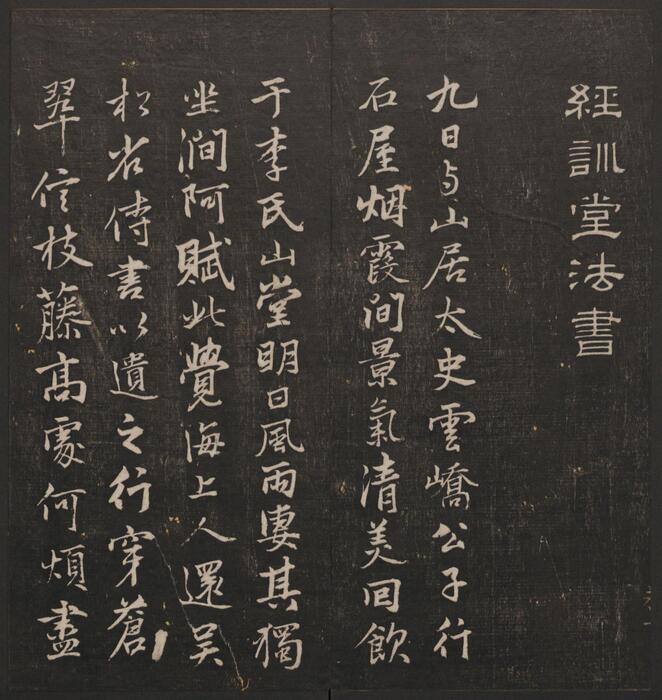 經訓堂法書
九日与山居太史雲嶠公子行
石屋烟霞洞景氣清美回飲
于李氏山堂明日風雨凄其獨
坐澗阿賦此覺海上人還吴
松省侍書以遺之行穿蒼
翠信枝藤髙處何煩盡